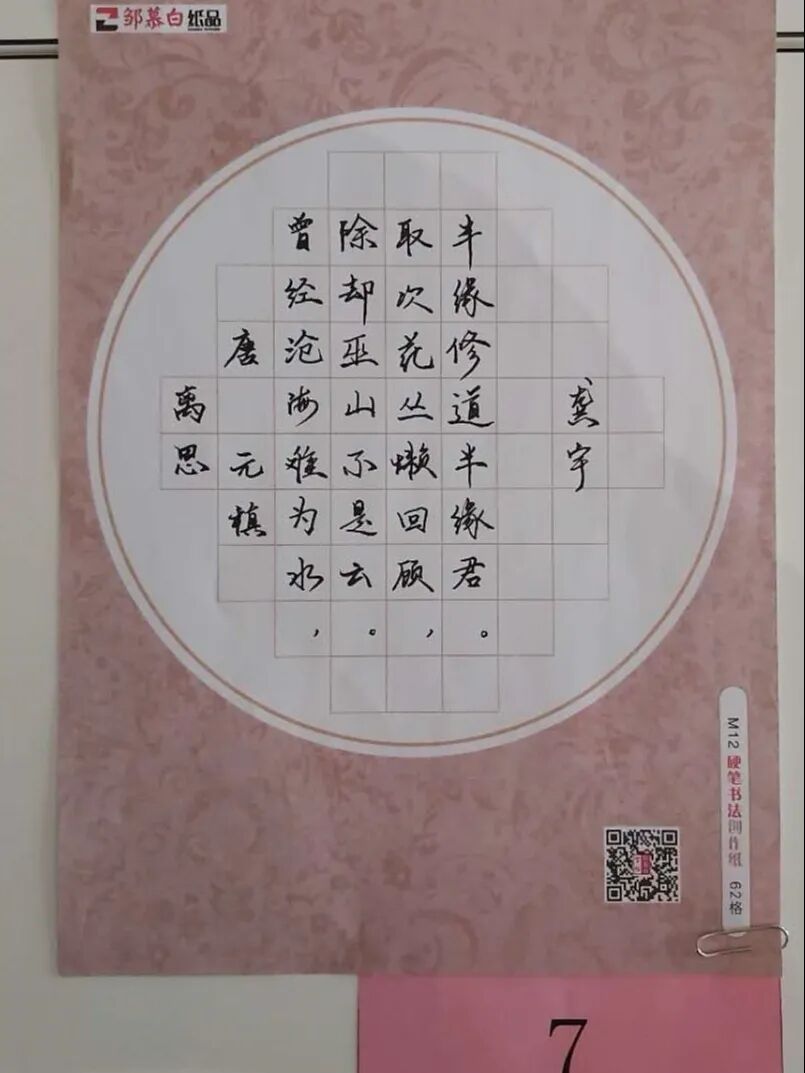 邹慕白纸品
离思
唐 元稹
曾经沧海难为水，
除却巫山不是云。
取次花丛懒回顾，
半缘修道半缘君。
龚宇
M12 硬笔书法创作纸 62格
7